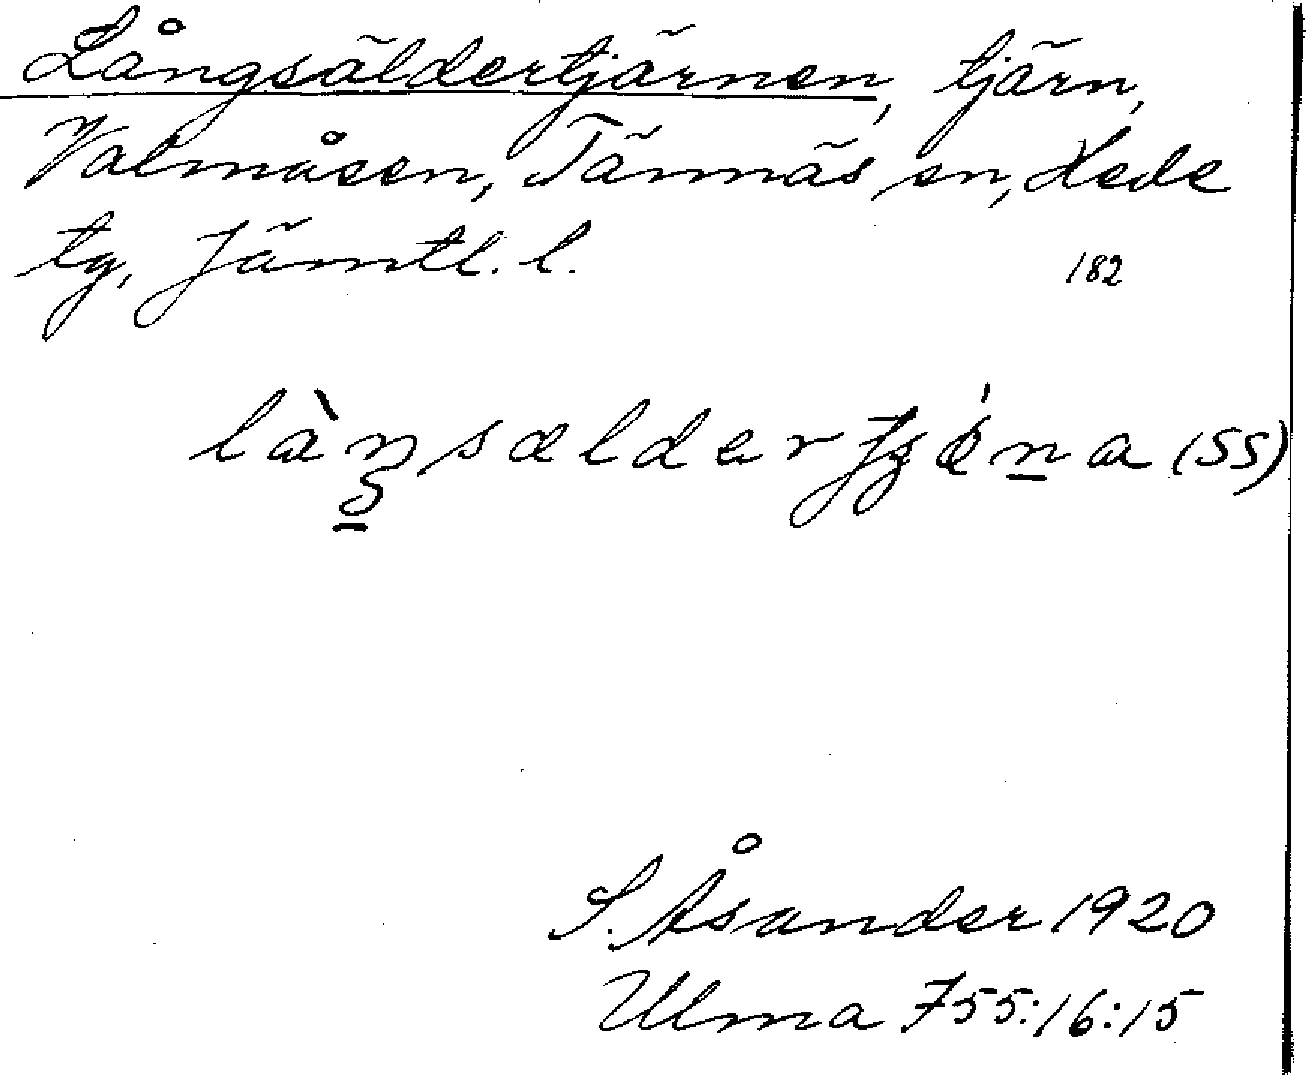 Långsäldertjärnen, tjärn,
Valmåsen, Tännäs sn, Hede
tg, Jämtl. l. 182
(SS)
S. Åsander 1920
Ulma 755:16:15